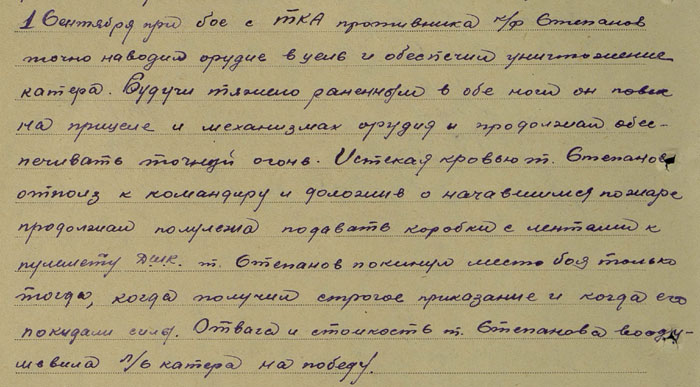 1 Сентября при бое с ТКА противника к/ф Степанов
точно наводил орудие в цель и обеспечил уничтожение
катера. Будучи тяжело раненным в обе ноги он повис
на прицеле и механизмах орудия и продолжал обес-
печивать точный огонь. Истекая кровью т. Степанов
отполз к командиру и доложив о начавшимся пожаре
продолжал полулежа подавать коробки с лентами к
пулемету ДШК. т. Степанов покинул место боя только
тогда, когда получил строгое приказание и когда его
покидали силы. Отвага и стойкость т. Степанова вооду-
шевила л/с катера на победу.